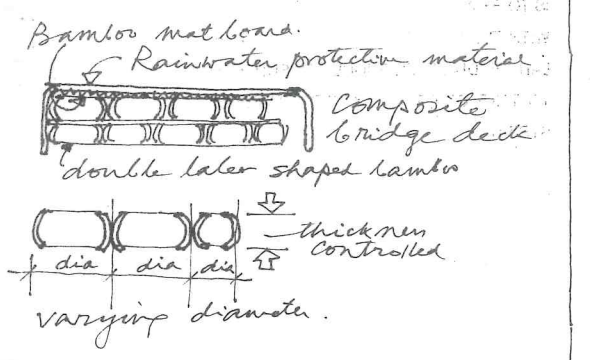 Bamboo mat board.
Rainwater protective material
Composite
bridge deck
double later shaped bamboo
thickness
controlled
dia dia dia
varying diameter.